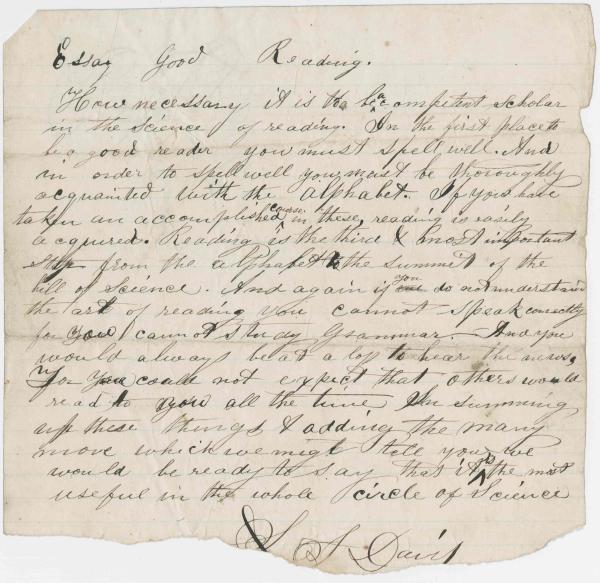 Essay Good Reading.
How necessary it is to be a competent scholar
in the science of reading. In the first place to
be a good reader you must spell well. And
in order to spell well you must be thoroughly
acquainted with the alphabet. If you have
taken an accomplished course in these, reading is easily
acquired. Reading is the third & most important
step from the alphabet to the summit of the
hill of science. And again if you do not understand
the art of reading you cannot speak correctly
for you cannot study Grammar. And you
would always be at a loss to hear the news,
For you could not expect that others would
read to you all the time In summing
up these things & adding the many
more which we migt tell you, we
would be ready to say that it is the most
useful in the whole circle of Science
S. S. Davis